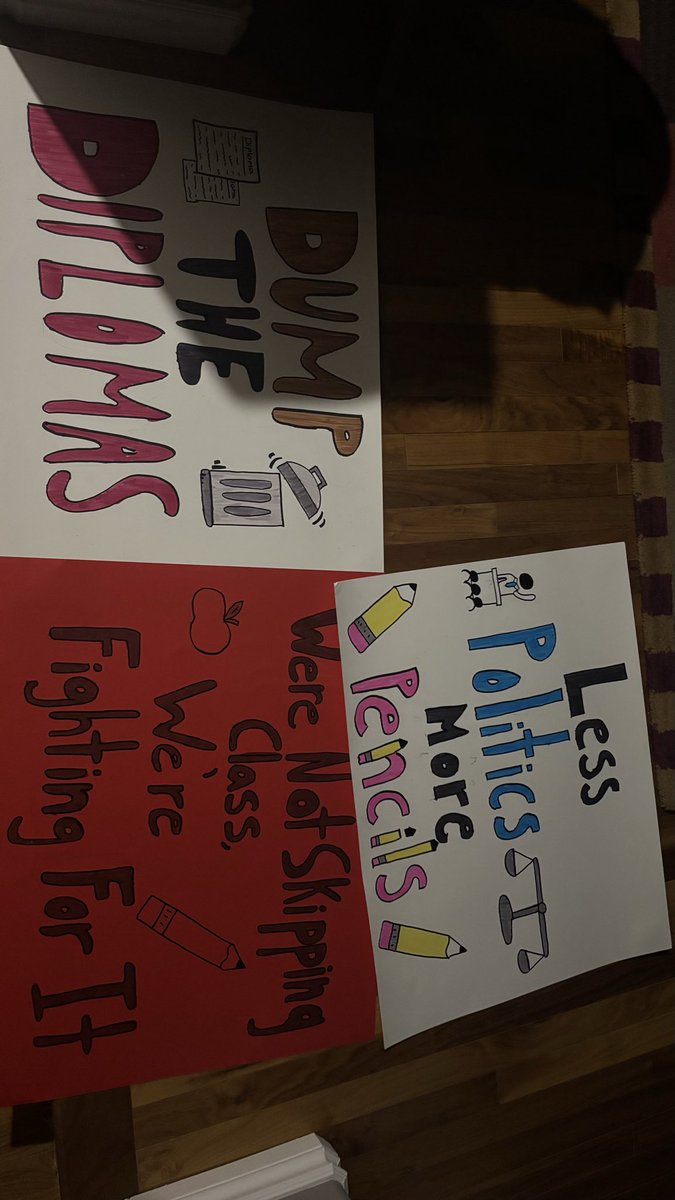 DUMP
THE
DIPLOMAS
Diploma
Less
Politics
More
Pencils
Were Not Skipping
Class,
We're
Fighting For It